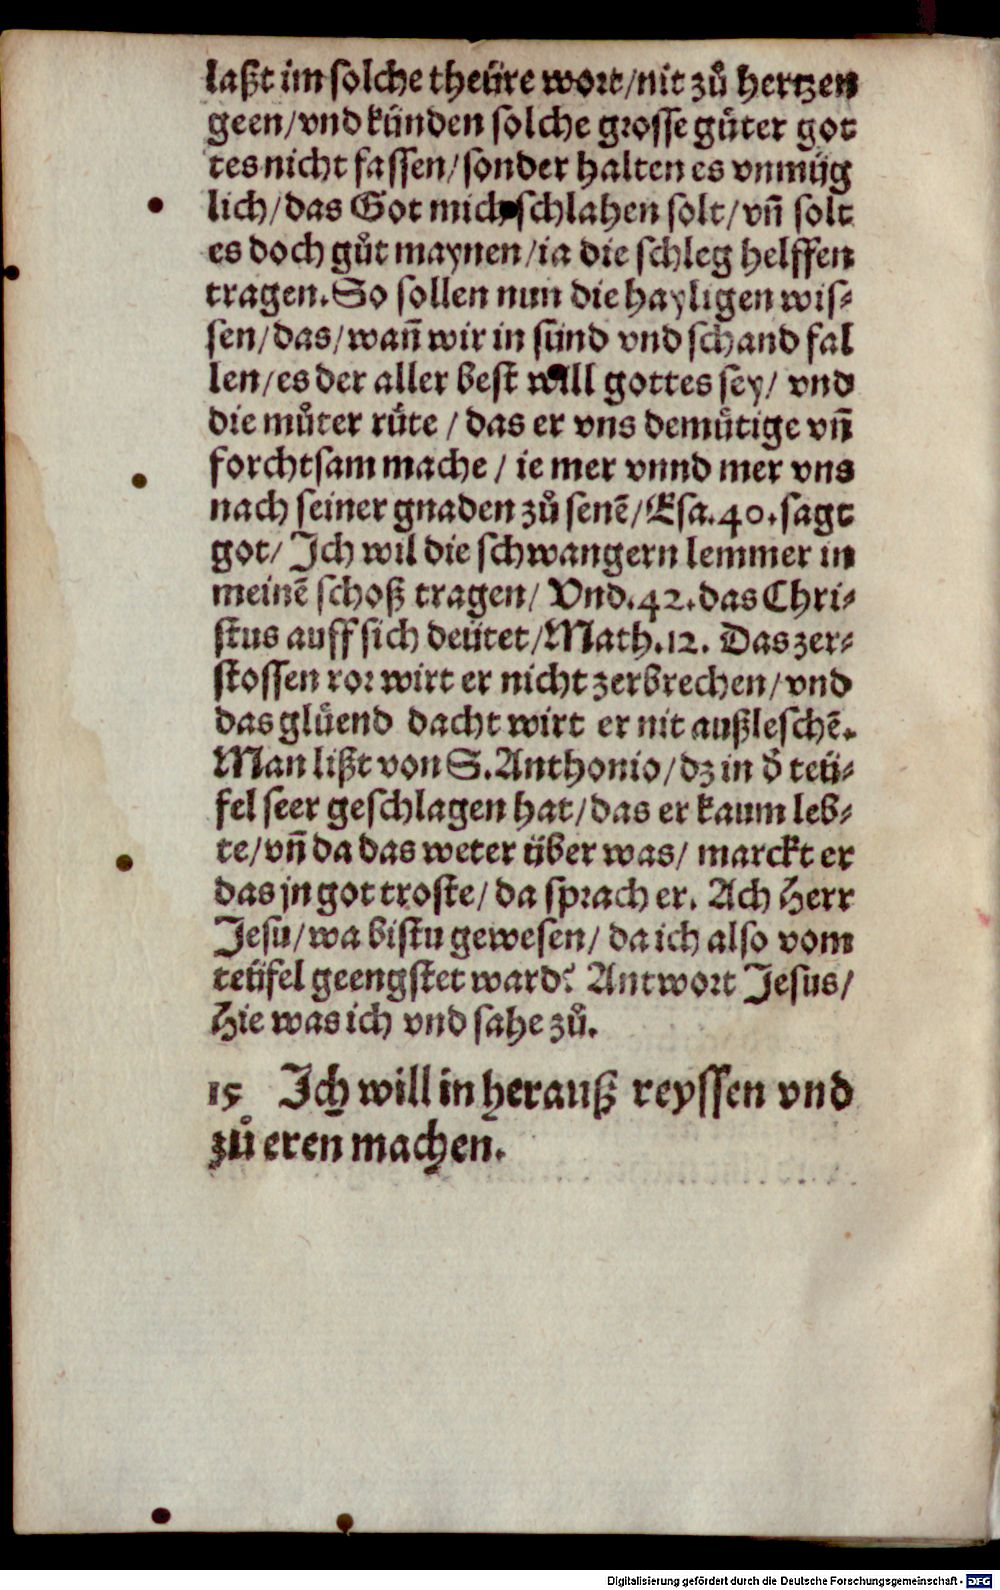 laßt im solche theüre wort/nit zů hertzen
geen/vnd künden solche grosse gůter got
tes nicht fassen/sonder halten es vnmüg
lich/das Got mich schlahen solt/vn̄ solt
es doch gůt maynen/ia die schleg helffen
tragen. So sollen nun die hayligen wis⸗
sen/das/wan̄ wir in sünd vnd schand fal
len/es der aller best will gottes sey/ vnd
die můter růte / das er vns demůtige vn̄
forchtsam mache / ie mer vnnd mer vns
nach seiner gnaden zů senē/Esa.40.sagt
got/ Ich wil die schwangern lemmer in
meinē schoß tragen/ Vnd.42.das Chri⸗
stus auff sich deütet/Math.12. Das zer⸗
stossen ror wirt er nicht zerbrechen/vnd
das glůend dacht wirt er nit außleschē.
Man lißt von S.Anthonio/dz in d̓ teü⸗
fel seer geschlagen hat/das er kaum leb⸗
te/vn̄ da das weter über was/ marckt er
das jn got troste/da sprach er. Ach Herr
Jesu/wa bistu gewesen/ da ich also vom
teüfel geengstet ward? Antwort Jesus/
Hie was ich vnd sahe zů.
15 Ich will in herauß reyssen vnd
zů eren machen.
Digitalisierung gefördert durch die Deutsche Forschungsgemeinschaft - DFG